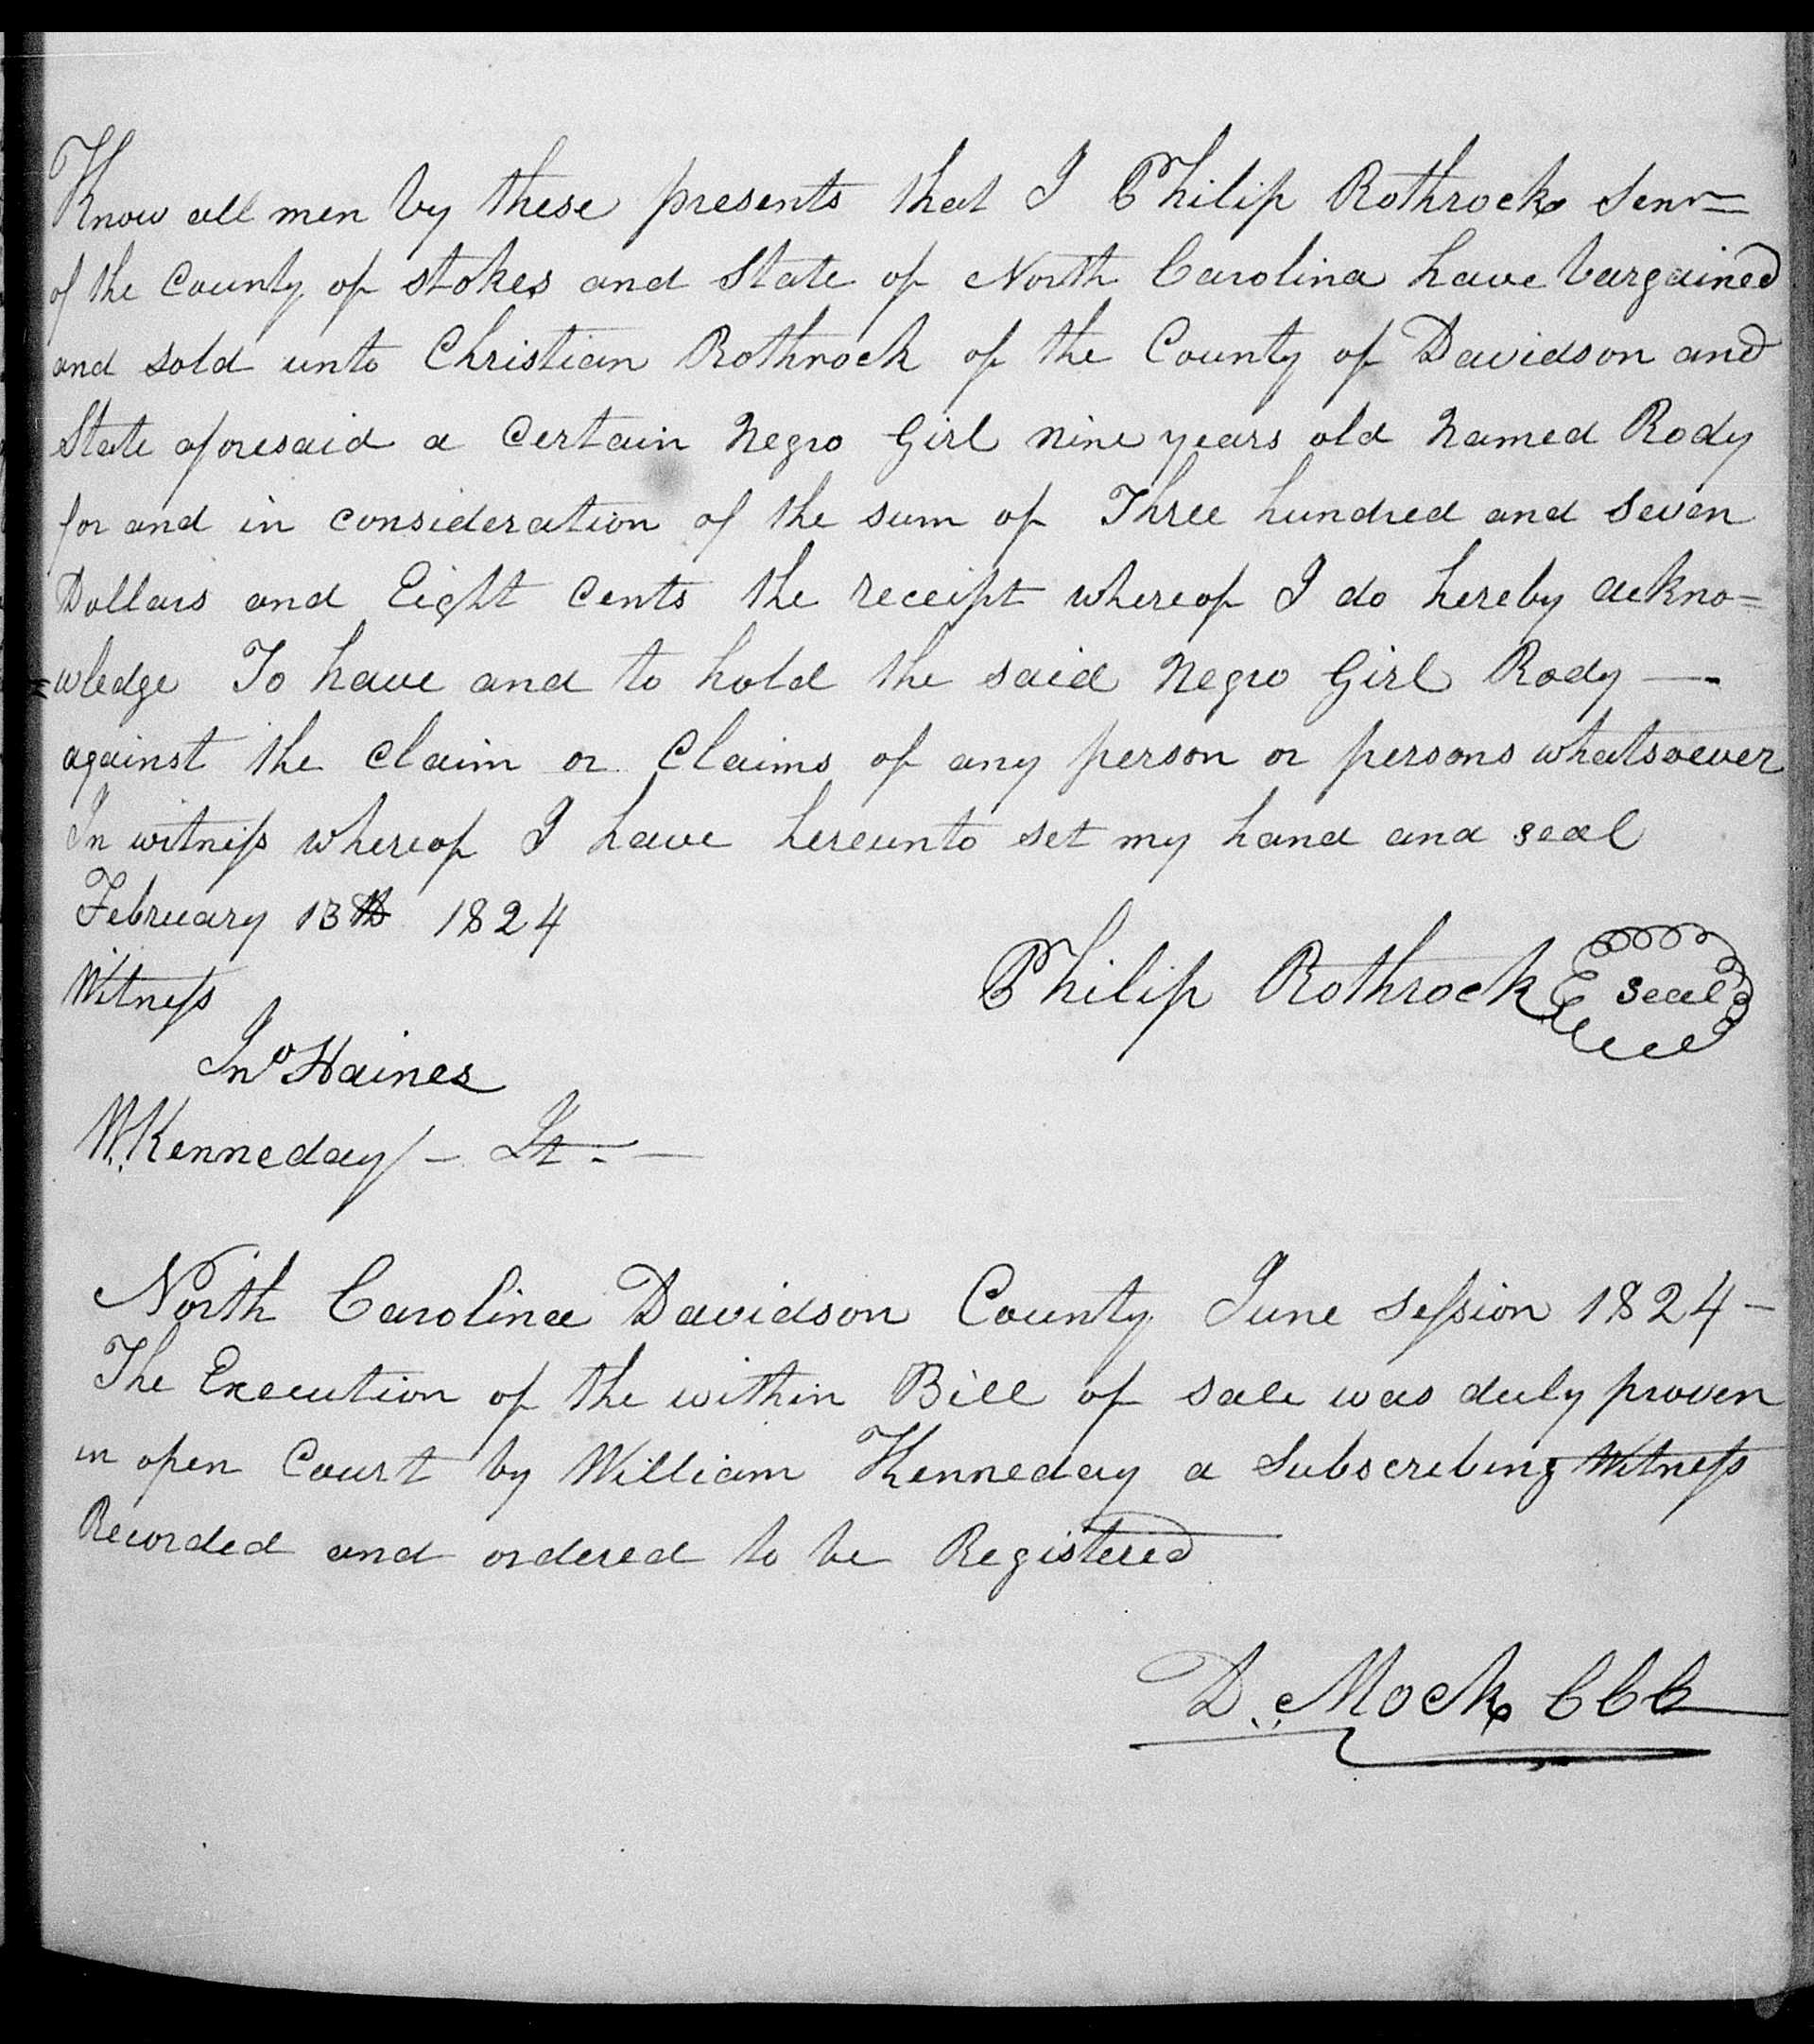 Know all men by these presents that I Philip Rothrock Senr
of the County of Stokes and State of North Carolina have bargained
and sold unto Christian Rothrock of the County of Davidson and
State aforesaid a Certain Negro Girl nine years old Named Rody
for and in consideration of the sum of Three hundred and seven
Dollars and Eight Cents the receipt whereof I do hereby ackno=
=wledge To have and to hold the said Negro Girl Rody —
against the Claim or Claims of any person or persons whatsoever
In witness whereof I have hereunto set my hand and seal
February 13th 1824
Witness
Philip Rothrock seal
Jno Haines
W. Kenneday — Jt. —
North Carolina Davidson County June Session 1824 —
The Execution of the within Bill of sale was duly proven
in open Court by William Kenneday a Subscribing Witness
Recorded and ordered to be Registered
D. Mock CCC